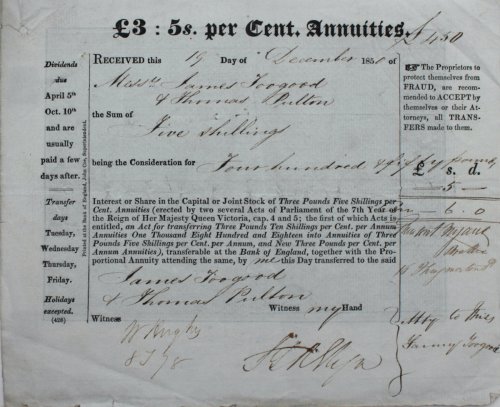 £3 : 5s. per Cent. Annuities.
£450
RECEIVED this 19 Day of December 185
Messrs James Toogood
& Thomas Pulton
the Sum of
Five shillings
being the Consideration for Four hundred & fifty pounds
Interest or Share in the Capital or Joint Stock of Three Pounds Five Shillings per
Cent. Annuities (erected by two several Acts of Parliament of the 7th Year of
the Reign of Her Majesty Queen Victoria, cap. 4 and 5; the first of which Acts is
entitled, an Act for transferring Three Pounds Ten Shillings per Cent. per Annum
Annuities One Thousand Eight Hundred and Eighteen into Annuities of Three
Pounds Five Shillings per Cent. per Annum, and New Three Pounds per Cent. per
Annum Annuities), transferable at the Bank of England, together with the
Proportional Annuity attending the same, by me this Day transferred to the said
James Toogood
& Thomas Pulton
Witness my Hand
Witness
Dividends
due
April 5th
Oct. 10th
and are
usually
paid a few
days after.
Transfer
days
Tuesday,
Wednesday
Thursday,
Friday.
Holidays
excepted.
(428)
Printed at the Bank of England, John Coe, Superintendent.
The Proprietors to
protect themselves from
FRAUD, are recom-
mended to ACCEPT by
themselves or their At-
torneys, all TRANS-
FERS made to them.
£ s. d.
5 —
6.0
Atty to Miss
Fanny Toogood